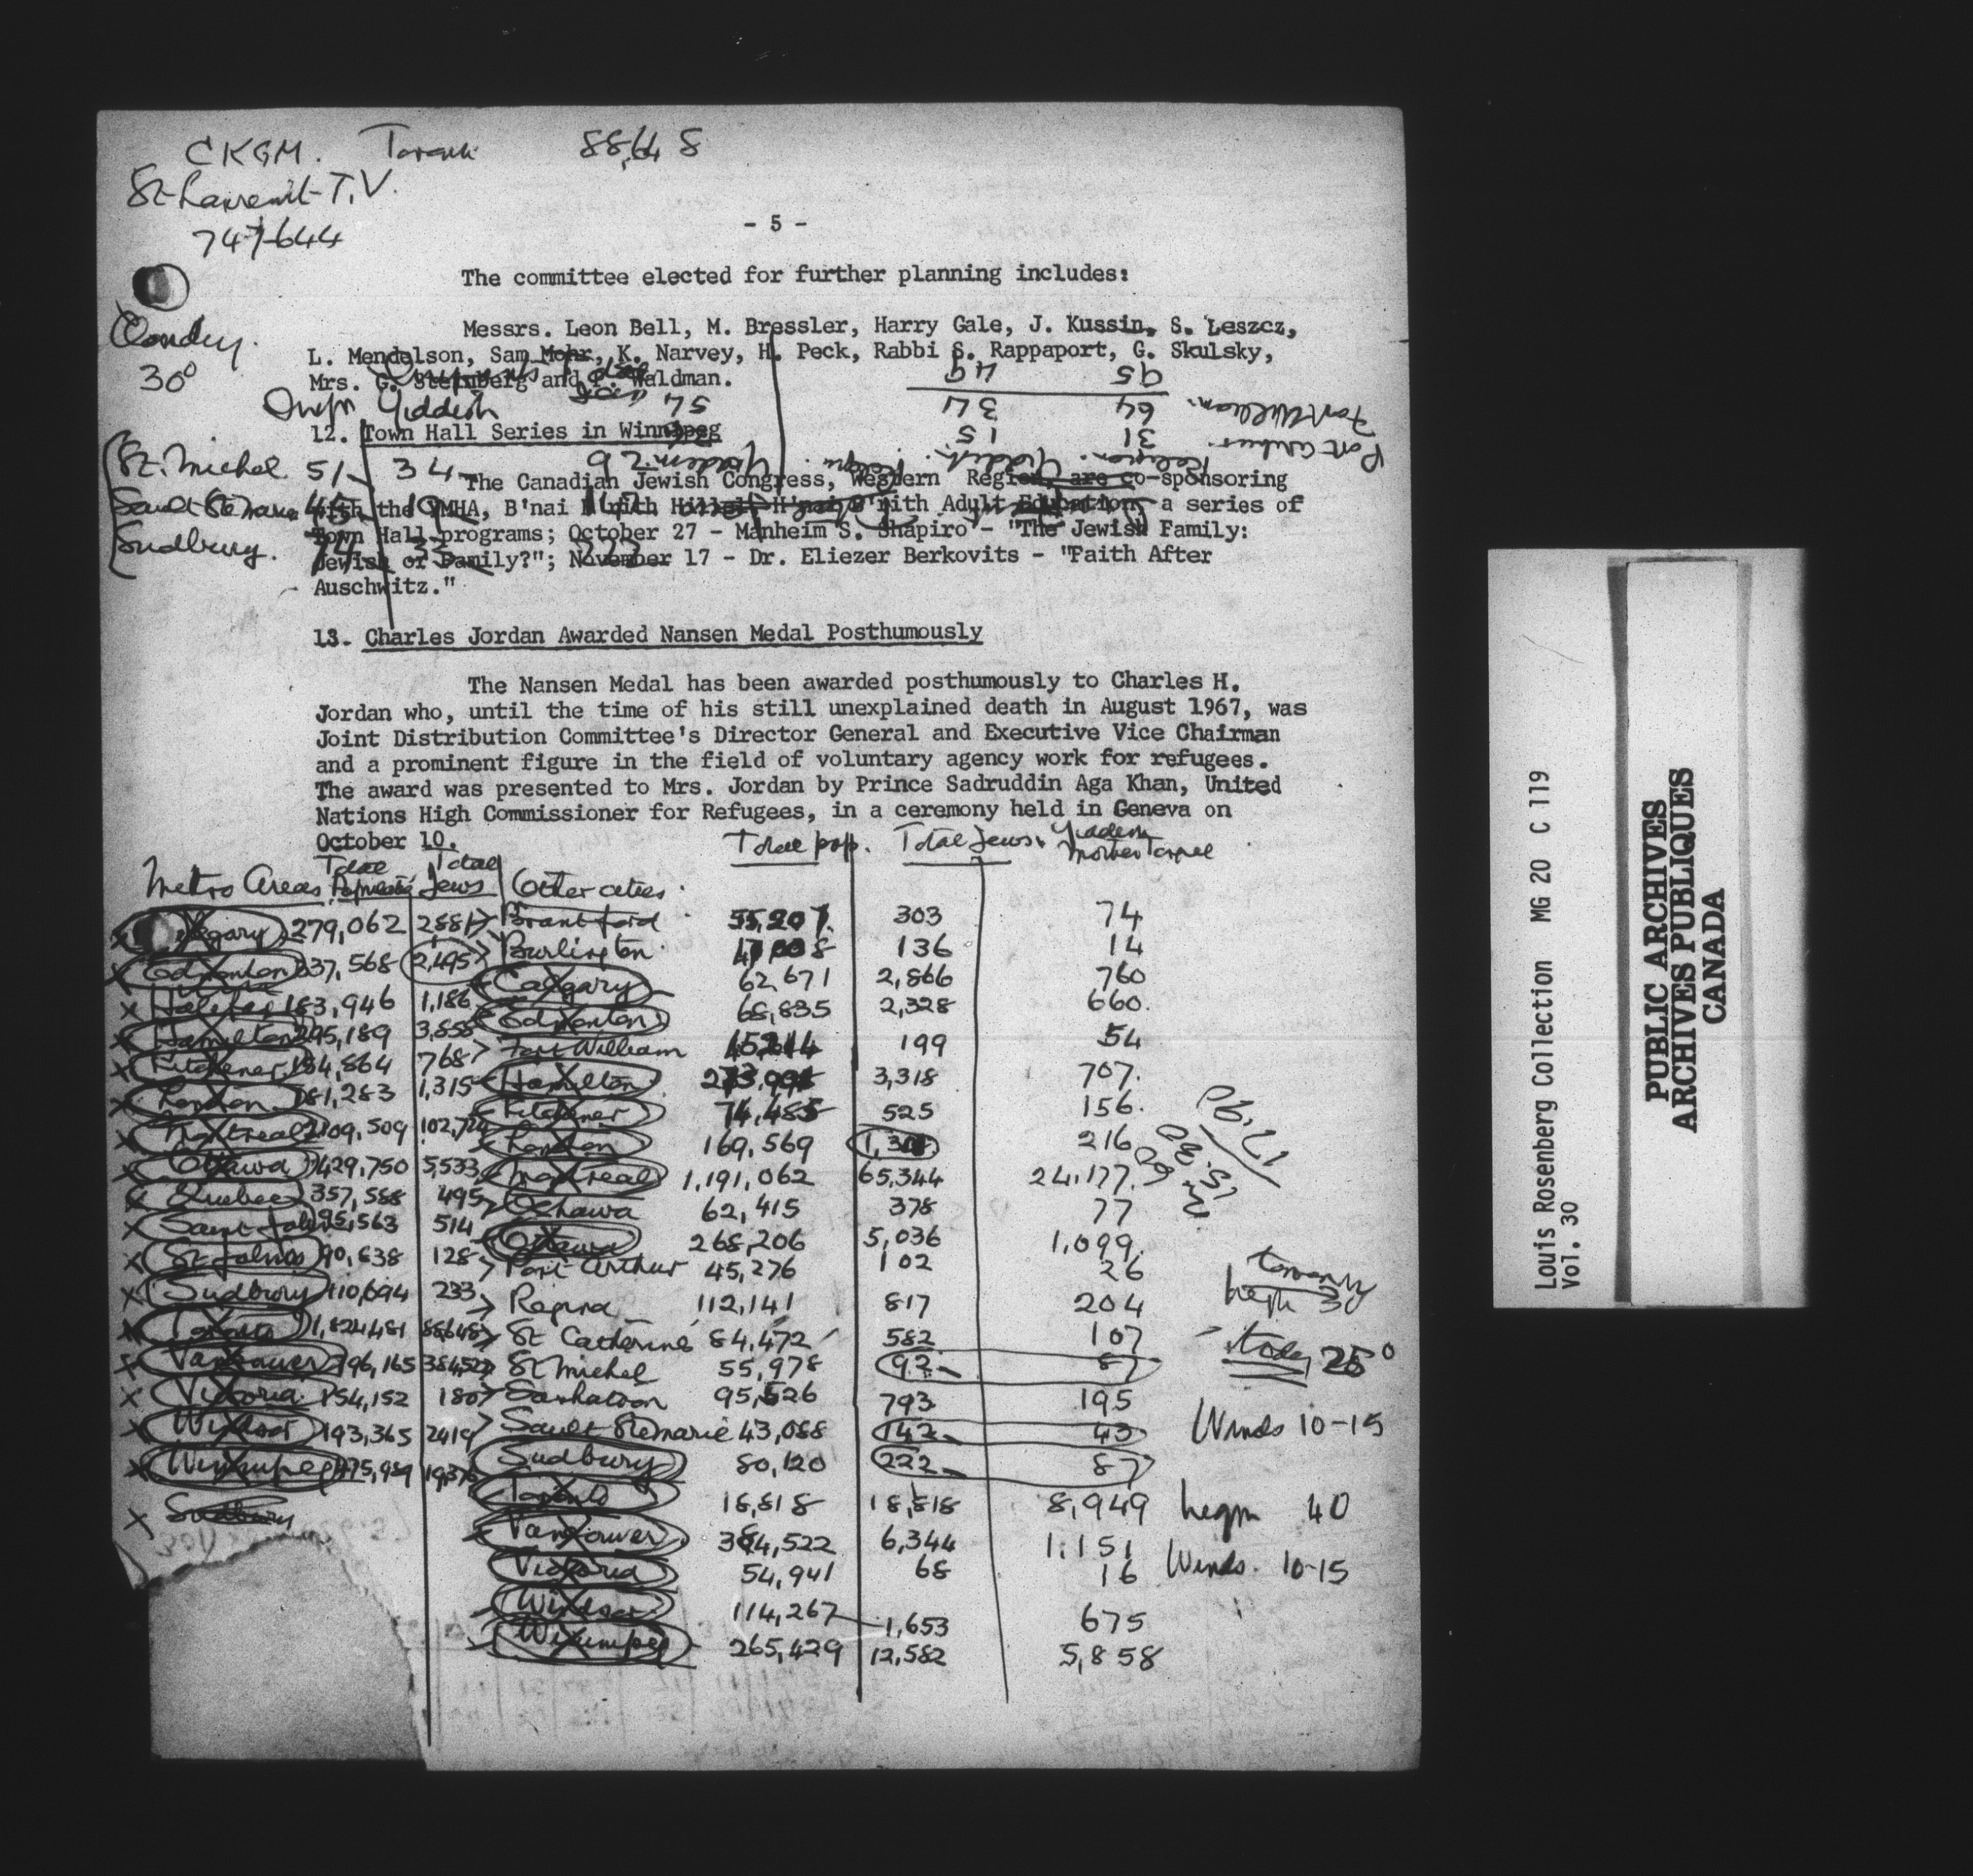 CKGM. 88,648
St-Laurent T.V.
747-644
- 5 -
The committee elected for further planning includes:
Cloudy.
30°
Messrs. Leon Bell, M. Bressler, Harry Gale, J. Kussin, S. Leszcz,
L. Mendelson, Sam Mohr, K. Narvey, H. Peck, Rabbi S. Rappaport, G. Skulsky,
Mrs. G. Steinberg and P. Waldman.
49 95
Yiddish 54 34 64 Fort William.
12. Town Hall Series in Winnipeg
15 31 Port Arthur
St. Michel 51 34
The Canadian Jewish Congress, Western Region, are co-sponsoring
Sault Ste Marie
with the YMHA, B'nai B'rith Hillel, B'nai B'rith Adult Education, a series of
Town Hall programs; October 27 - Manheim S. Shapiro - "The Jewish Family:
Sudbury.
Jewish or Family?"; November 17 - Dr. Eliezer Berkovits - "Faith After
Auschwitz."
13. Charles Jordan Awarded Nansen Medal Posthumously
The Nansen Medal has been awarded posthumously to Charles H.
Jordan who, until the time of his still unexplained death in August 1967, was
Joint Distribution Committee's Director General and Executive Vice Chairman
and a prominent figure in the field of voluntary agency work for refugees.
The award was presented to Mrs. Jordan by Prince Sadruddin Aga Khan, United
Nations High Commissioner for Refugees, in a ceremony held in Geneva on
October 10.
Metro Areas Total Population Total Jews Other cities Total pop. Total Jews Yiddish Mother Tongue
Calgary 279,062 2881 Brantford 55,201 303 74
Edmonton 337,568 2,495 Burlington 136 14
Calgary 62,671 2,866 760
Halifax 183,946 1,186 Edmonton 68,835 2,328 660
Hamilton 395,189 3,858 Fort William 199 54
Kitchener 154,864 768 Hamilton 3,318 707
London 181,283 1,315 Kitchener 74,485 525 156
Montreal 2109,509 102,724 London 169,569 216
Ottawa 429,750 5,533 Montreal 1,191,062 65,344 24,177
Quebec 357,588 495 Oshawa 62,415 378 77
Saint John 95,563 514 Ottawa 268,206 5,036 1,099
St Johns 90,838 128 Port Arthur 45,276 102 26
Sudbury 110,694 233 Regina 112,141 817 204
Toronto 1,824,481 88648 St Catherine 84,472 582 107
today 25°
Vancouver St Michel 55,978 92 87
Victoria 154,152 180 Saskatoon 95,526 793 195
Windsor 193,365 2419 Sault Ste Marie 43,088 142 43
Winds 10-15
Winnipeg 475,989 19,376 Sudbury 80,120 222 87
Sudbury Toronto 18,818 18,818 8,949 40
Vancouver 384,522 6,344 1,151
Victoria 54,941 68 16
Winds. 10-15
Windsor 114,267 1,653 675
Winnipeg 265,429 12,582 5,858
Louis Rosenberg Collection MG 20 C 119
Vol. 30
PUBLIC ARCHIVES
ARCHIVES PUBLIQUES
CANADA